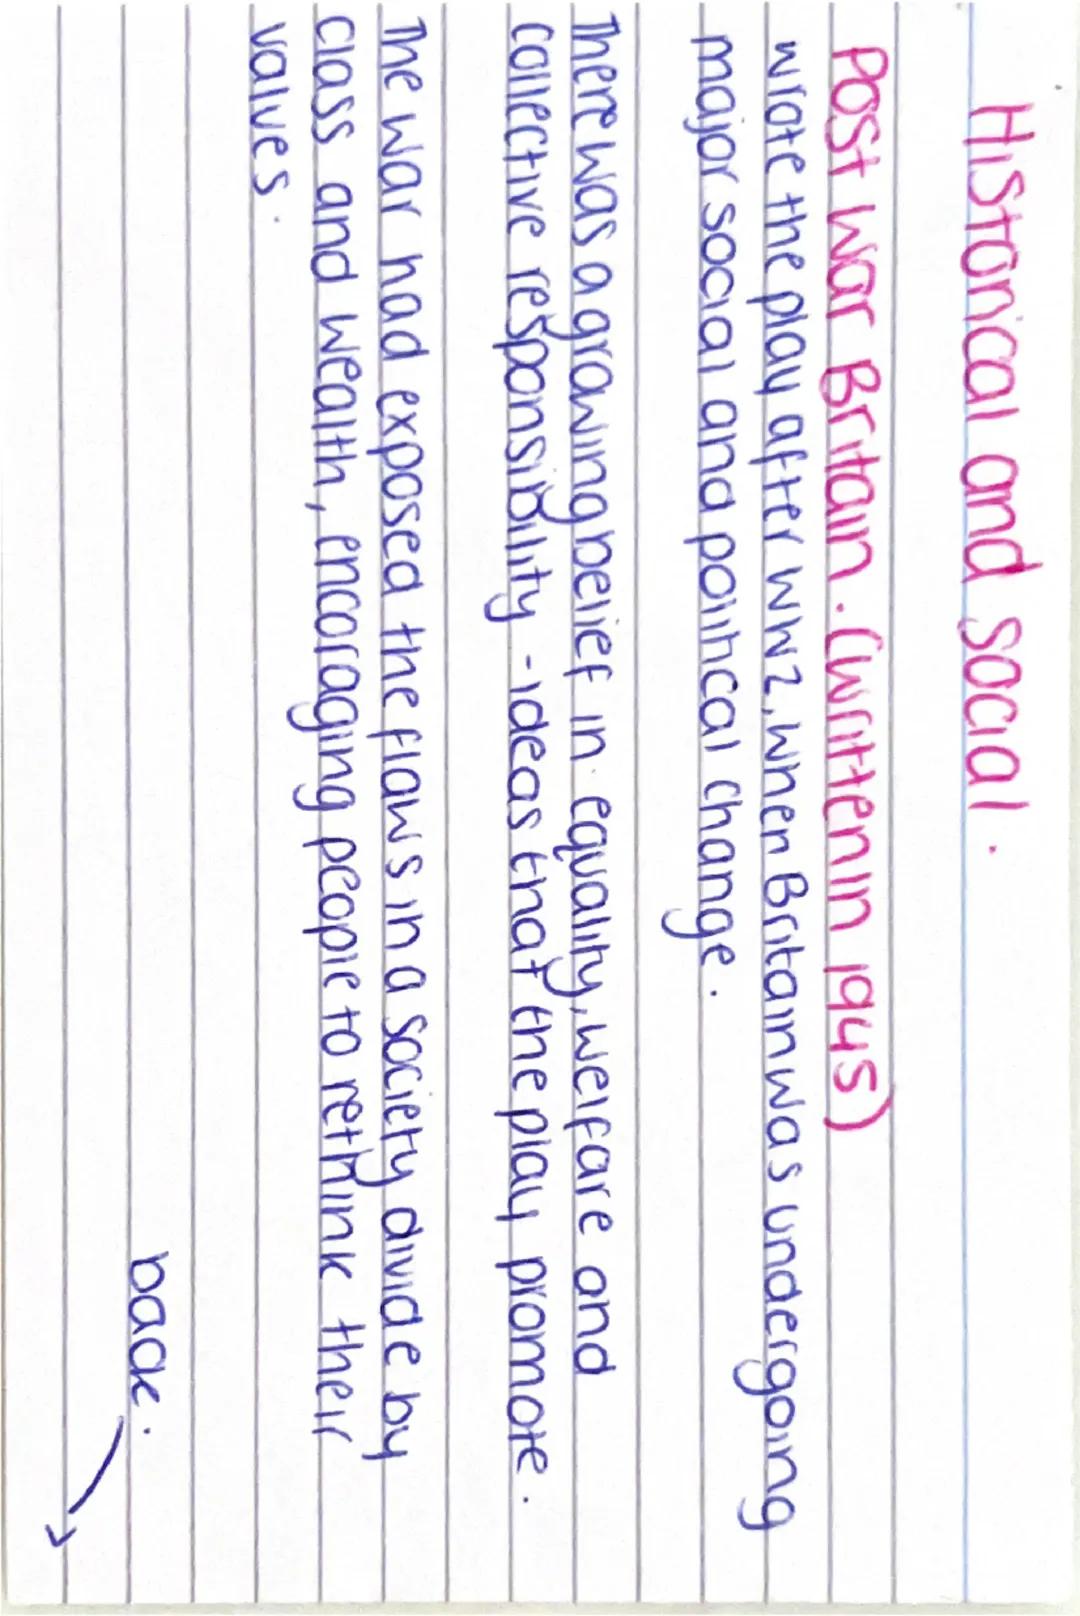 Historical and social.
Post war Britain. (written in 1945)
wrote the play after WW2, when Britain was undergoing
major social and political change.
There was a growing belief in equality, welfare and
collective responsibility - ideas that the play promote.
The war had exposed the flaws in a society divide by
class and wealth, encoraging people to rethink their
values.
back.